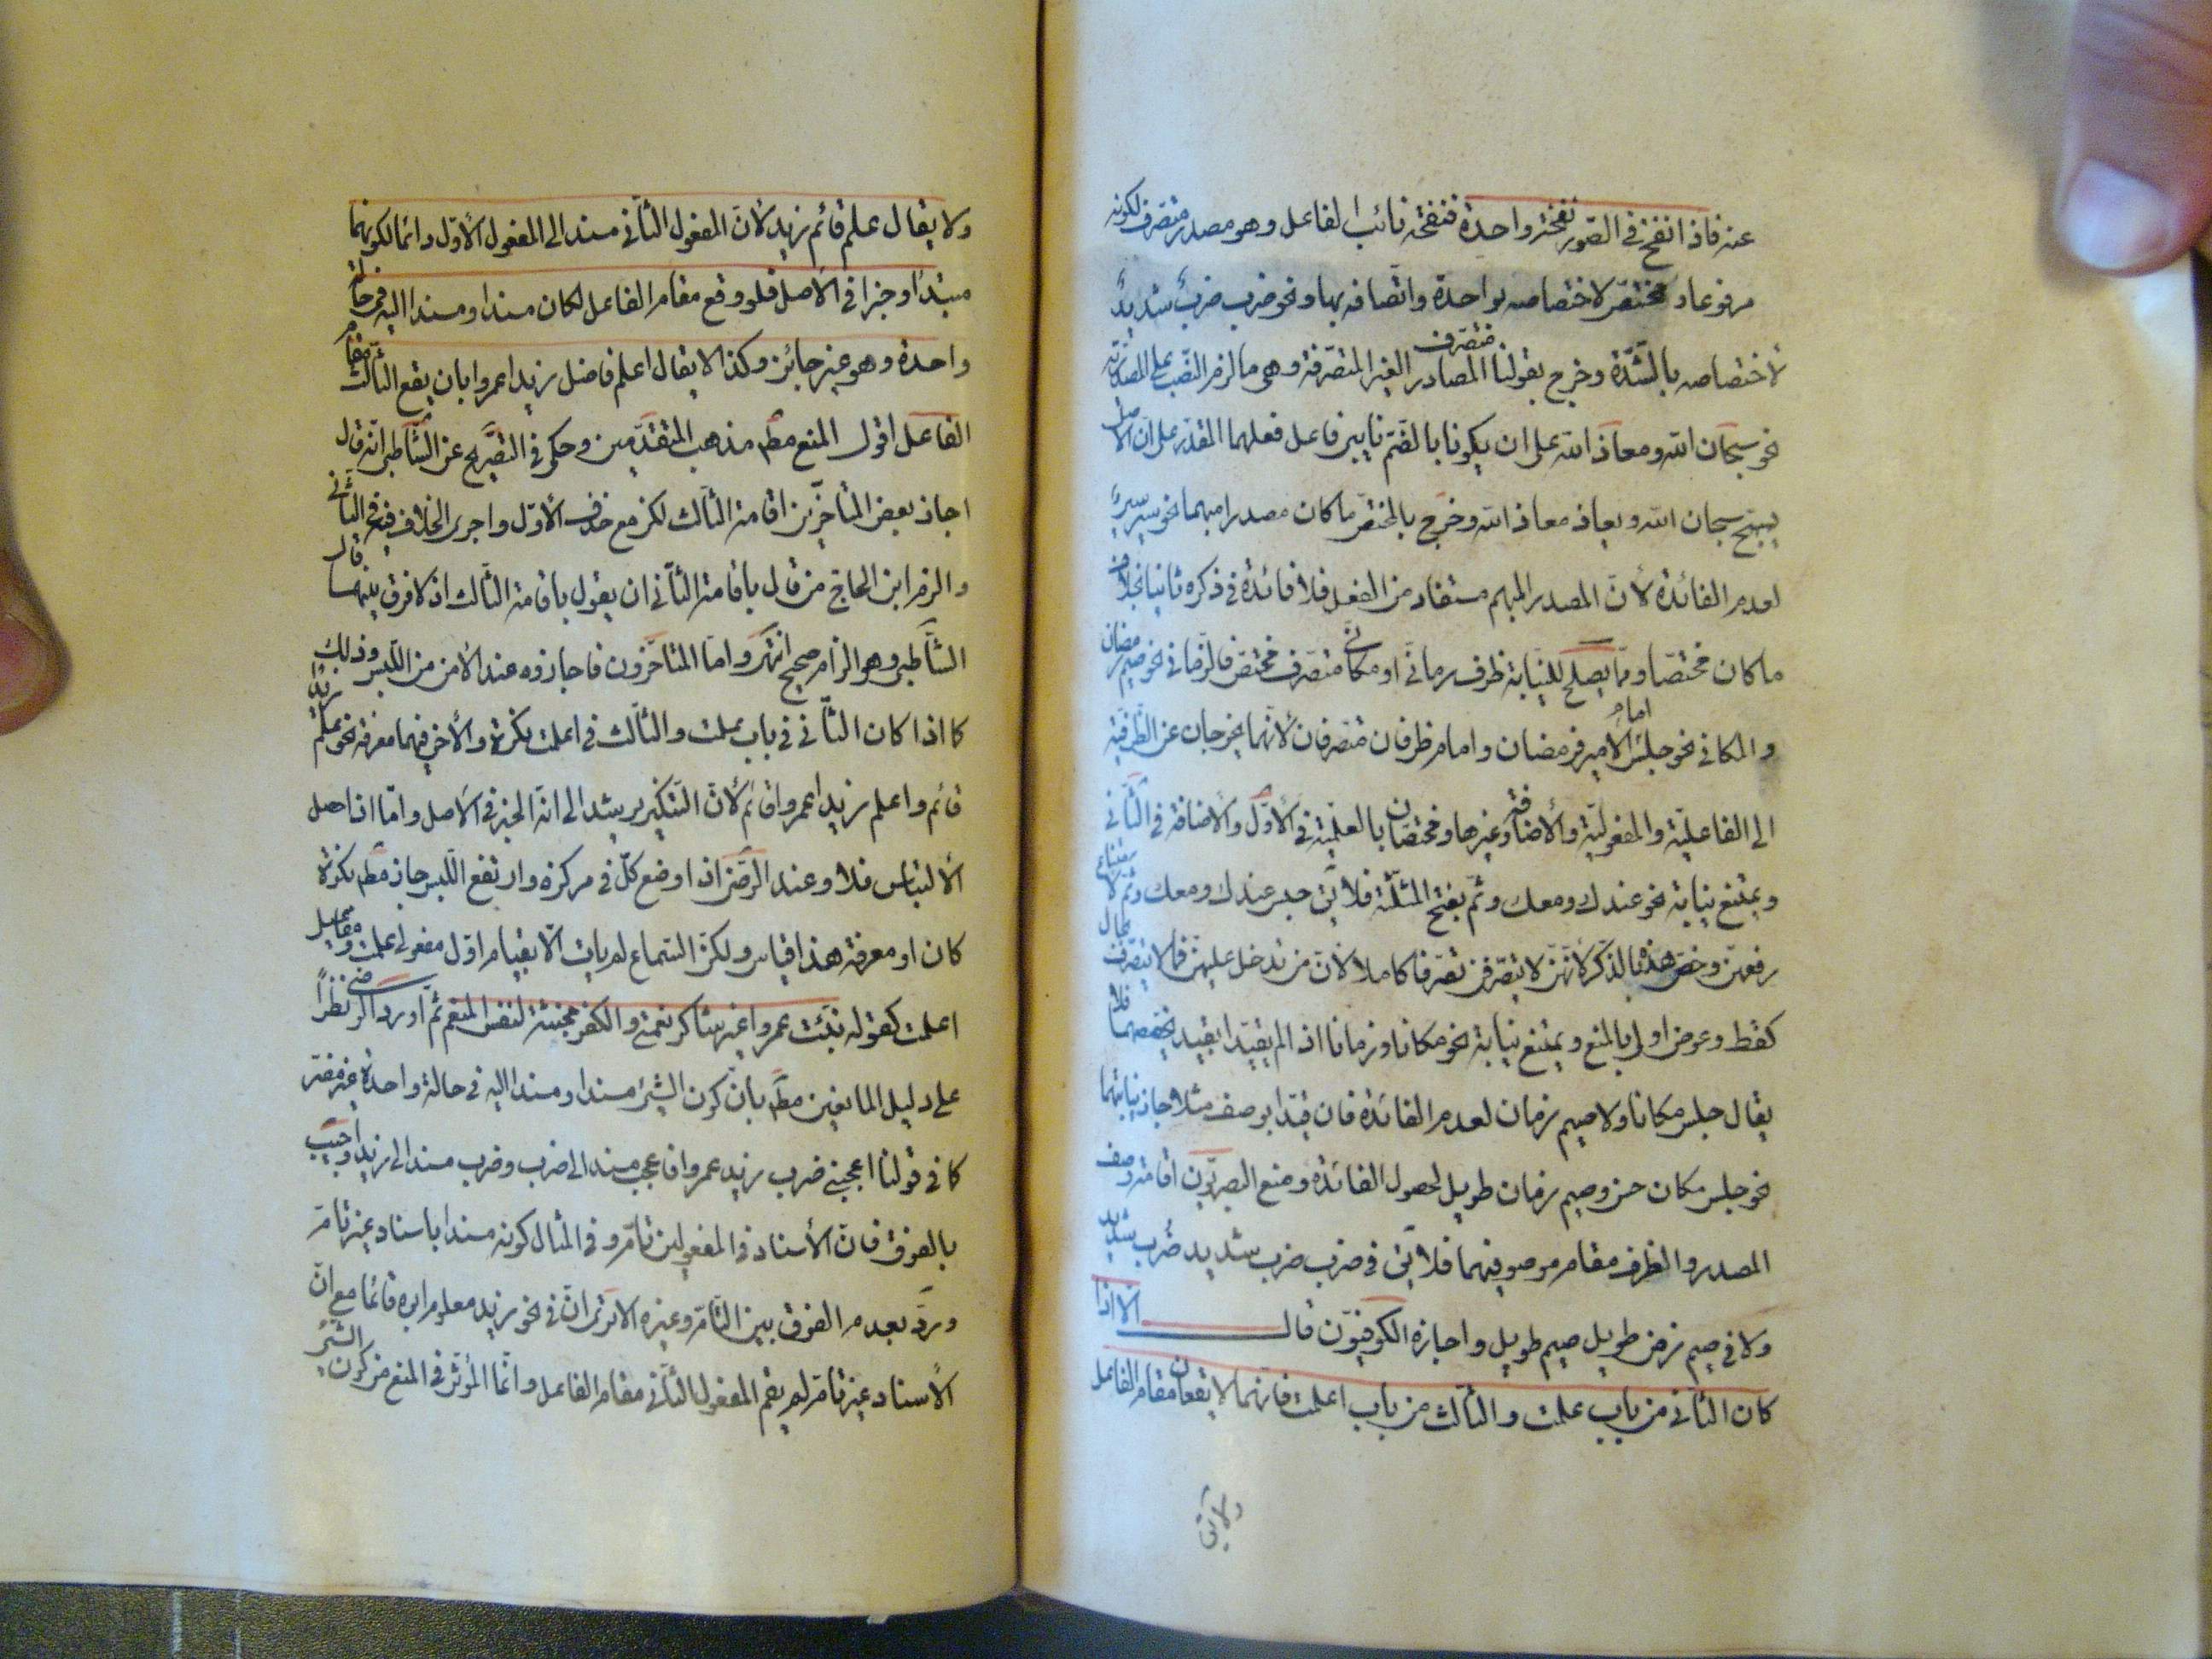 عنه فاذا نفخ في الصّور نفخة واحدة فنفخة نائب الفاعل وهو مصدر متصرف لكونه
مرفوعا ومختصّ لاختصاصه بواحدة واتّصافه بها ونحو ضرب ضربٌ شديدٌ
لاختصاصه بالشّدّة وخرج بقولنا متصرف المصادر الغير المتصرّفة وهى ما لزم النّصب على المصدريّة
نحو سبحان الله ومعاذ الله على ان يكونا بالضّم نايبين فاعل فعلهما المقدّر على انّ الاصل
يسبّح سبحان الله ويعاذ معاذ الله وخرج بالمختصّ ما كان مصدرا مبهما نحو سير سيرٌ
لعدم الفائدة لأنّ المصدر المبهم مستفاد من الفعل فلا فائدة في ذكره ثانيا بخلاف
ما كان مختصّا وممّا يصلح للنّيابة ظرف زمانّى او مكانّى متصرف مختصّ فالزّمانى نحو صيم رمضان
والمكاني نحو جلس امام الأمير فرمضان وامام ظرفان متصرفان لأنّهما يخرجان عن الظّرفيّة
الى الفاعليّة والمفعوليّة والأضافة وغيرها ومختصّان بالعلميّة في الأوّل والأضافة في الثّاني
ويمتنع نيابة نحو عندك ومعك وثَمّ بفتح المثلّثة فلا يق جلس عندك ومعك وثمّ لامتناع
رفعهنّ وخصّ هذه بالذّكر لأنّهنّ لا يتصرّفن تصرّفا كاملا لأنّ من تدخل عليهنّ فما لا يتصرّف بحال
كقط وعوض اولى بالمنع ويمتنع نيابة نحو مكانا وزمانا اذا لم يقيّدا بقيد يخصّصهما فلا
يقال جلس مكانا ولا صيم زمان لعدم الفائدة فان قيّدا بوصف مثلا جاز نيابتهما
نحو جلس مكان حسن وصيم زمان طويل لحصول الفائدة ومنع البصريّون اقامة وصف
المصدر والظرف مقام موصوفيهما فلا يق في ضرب ضرب شديد ضُرب شديد
ولا في صيم زمن طويل صيم طويل واجازه الكوفيّون قال الّا اذا
كان الثّاني من باب علمت والثّالث من باب اعلمت فانّهما لا يقعان مقام الفاعل
ولا يق
ولا يقال علم قائم زيد لأنّ المفعول الثّانى مسند الى المفعول الأوّل دائما لكونهما
مبتدأ وخبرا في الأصل فلو وقع مقام الفاعل لكان مسندا ومسندا اليه في حالة
واحدة وهو غير جائز وكذا لا يقال اعلم فاضل زيدا عمروا بان يقع الثّالث مقام
الفاعل اقول المنع مطم مذهب المتقدّمين وحكى في التصريح عن الشّاطبى انّه قال
اجاز بعض المتأخّرين اقامة الثّالث لكن مع حذف الأوّل واجرى الخلاف فيه في الثّانى
والزم ابن الحاج من قال باقامة الثّانى ان يقول باقامة الثّالث اذ لا فرق بينهما قال
الشّاطبى وهو الزام صحيح انتهى وامّا المتأخّرون فاجازوه عند الأمن من اللّبس وذلك
كما اذا كان الثّانى في باب علمت والثّالث في اعلمت نكرة والأخر فيهما معرفة نحو علم زيدًا
قائم واعلم زيدا عمروا قائم لأنّ التّنكير يرشد الى انّه الخبر في الأصل وامّا اذا حصل
الألتباس فلا وعند الرّضى اذا وضع كلّ في مركزه وارتفع اللّبس جاز مطم نكرة
كان او معرفة هذا قياس ولكنّ السّماع لم يأت الّا بقيام اوّل مفعولى علمت ومفاعيل
اعلمت كقوله نبّئت عمروا غير شاكر نعمتى والكفر مخبثة لنفس المنعم ثمّ اورد الرّضى نظراً
على دليل المانعين مطم بانّ كون الشيئ مسندا ومسندا اليه في حالة واحدة غير مضرّ
كما في قولنا اعجبنى ضرب زيد عمروا فاعجب مسند الى ضرب وضرب مسند الى زيد واجيب
بالفرق فانّ الأسناد في المفعولين تامّ وفي المثال كونه مسندا باسناد غير تامّ
وردّ بعدم الفرق بين التّامّ وغيره الا ترى انّ في نحو زيد معلوم ابوه قائما مع انّ
الأسناد غير تامّ لم يقم المفعول الثّانى مقام الفاعل وانّما المؤثّر في المنع من كون الشّيئ